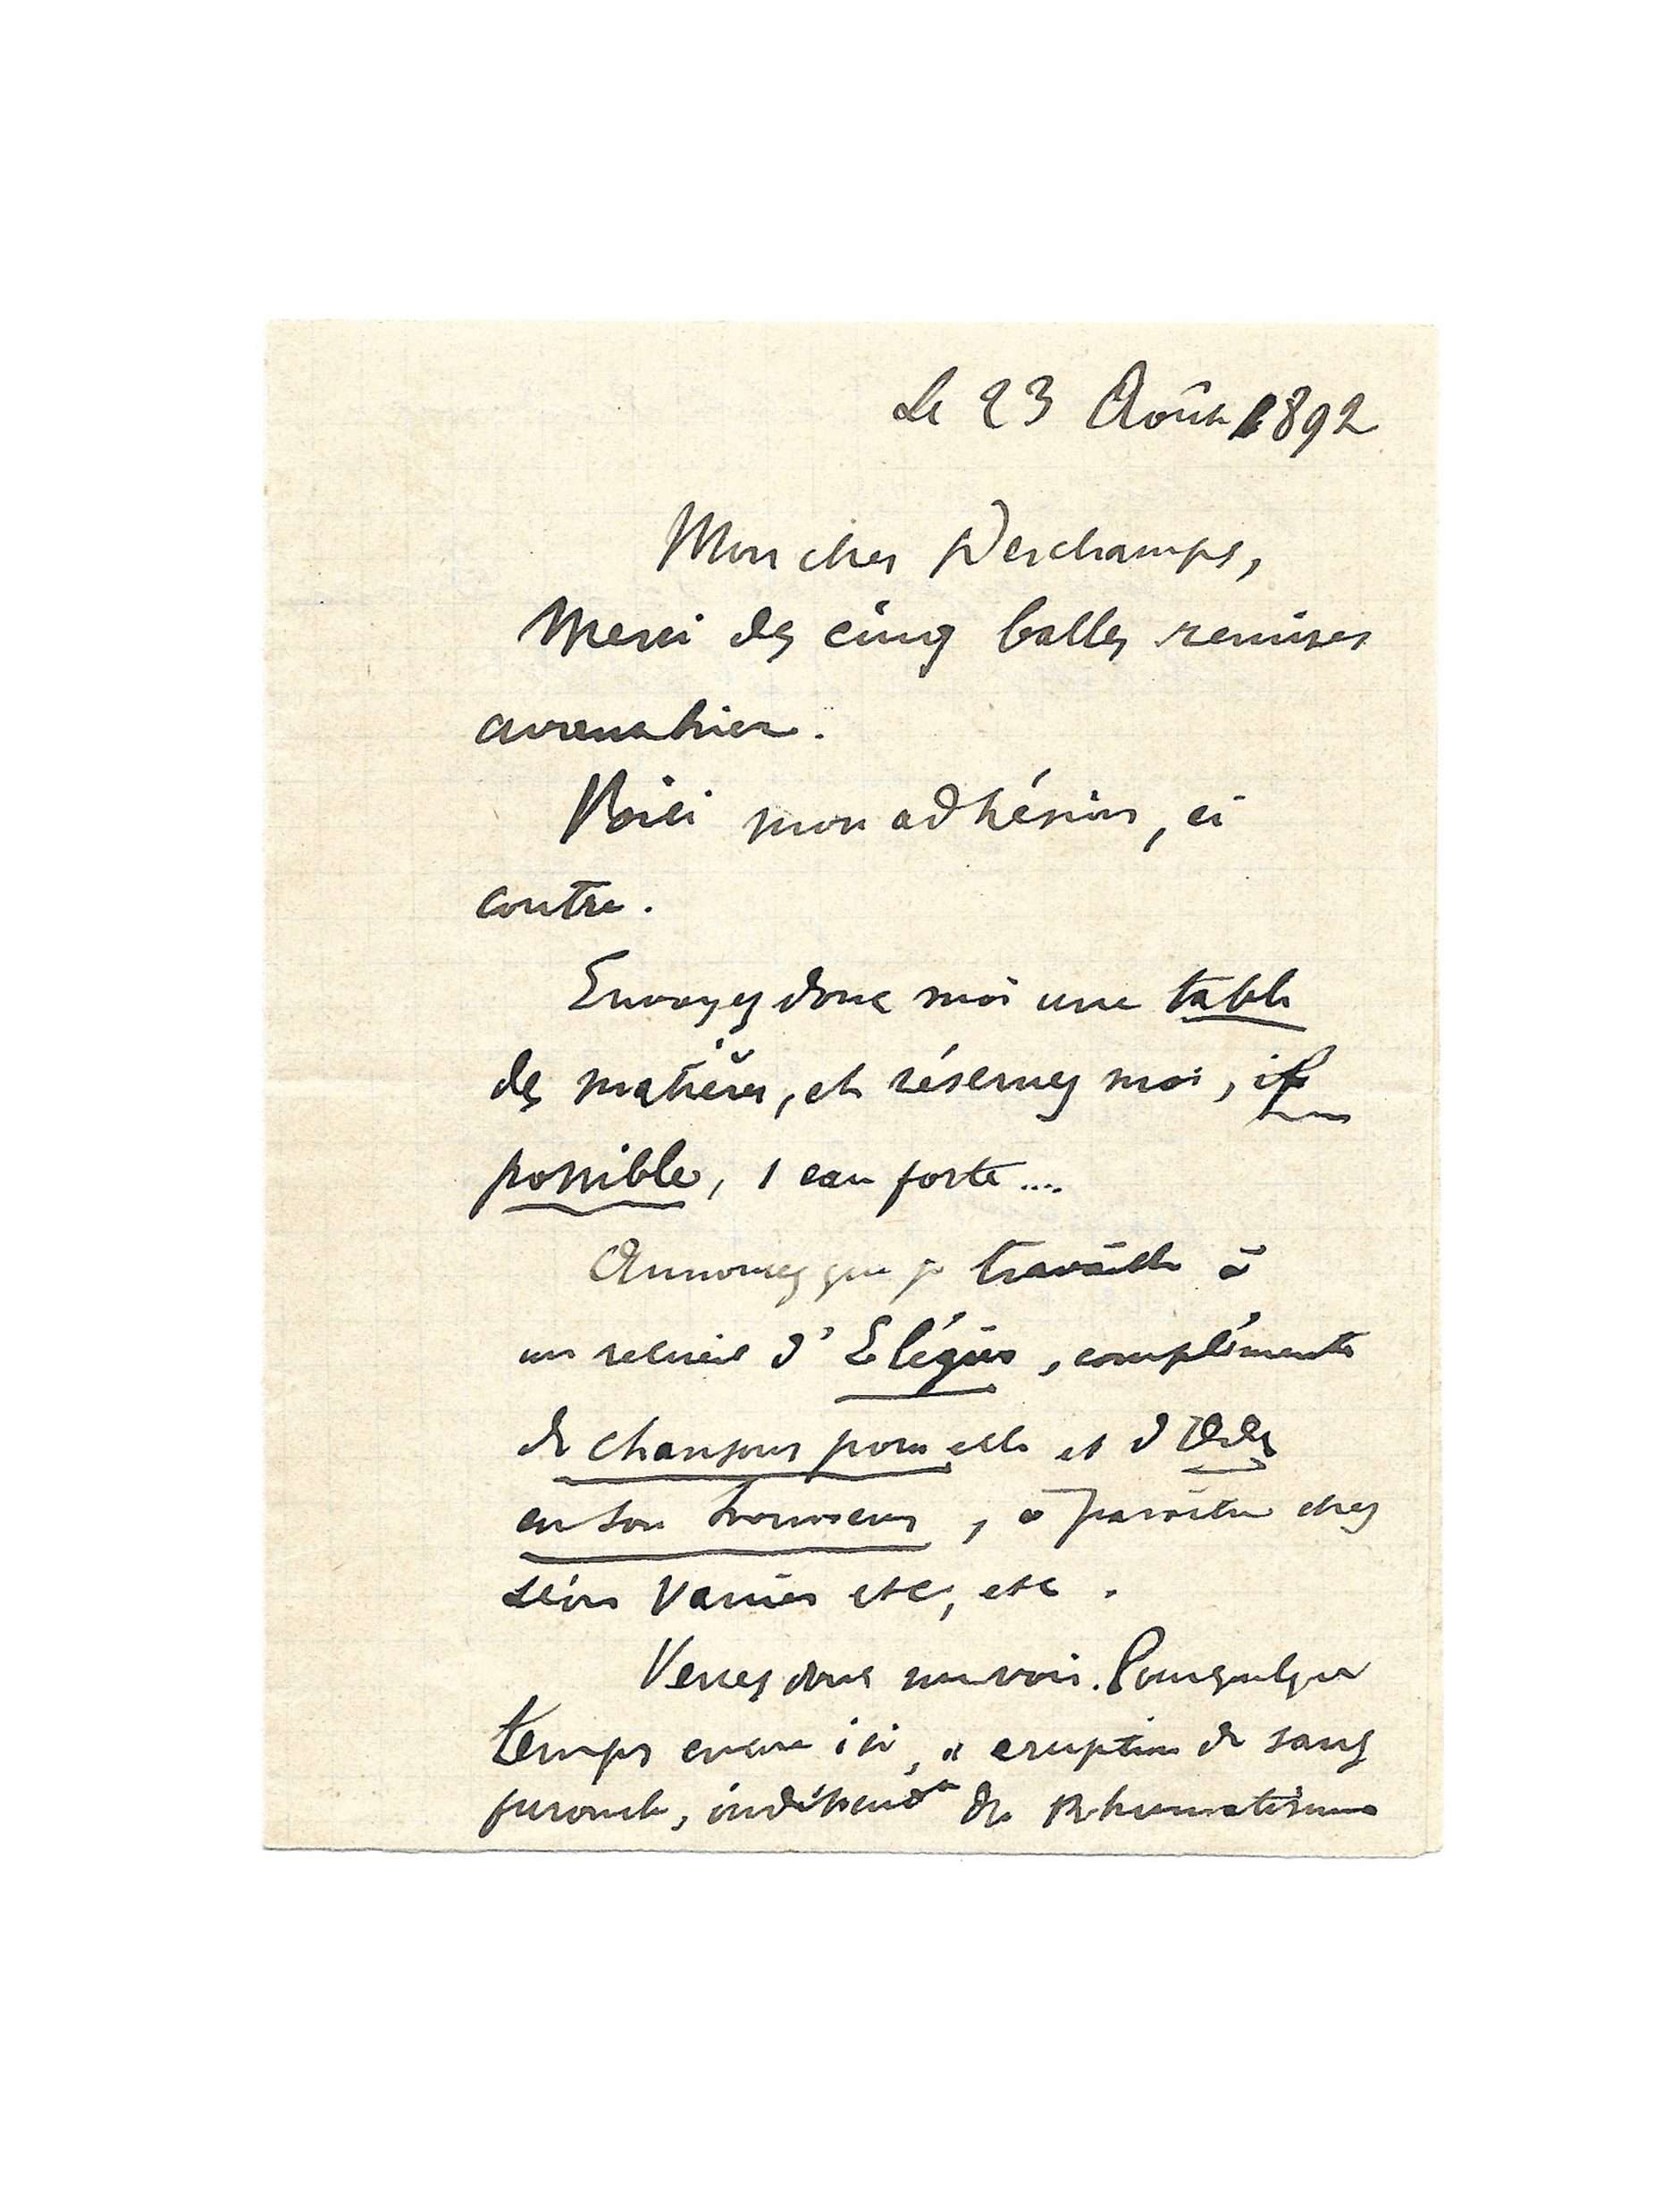 Le 23 Août 1892
Mon cher Deschamps,
Merci des cinq balles remises
avant hier.
Voici mon adhésion, ci
contre.
Envoyez donc moi une table
des matières, et réservez moi, if
possible, 1 eau forte....
Annoncez que je travaille à
un recueil d'Elégies, complément
de chansons pour elle et d'Odes
en son honneur, à paraître chez
Léon Vanier etc, etc.
Venez donc me voir. Pour quelque
temps encore ici, éruption de sang
furoncle, indépendt de Rhumatisme